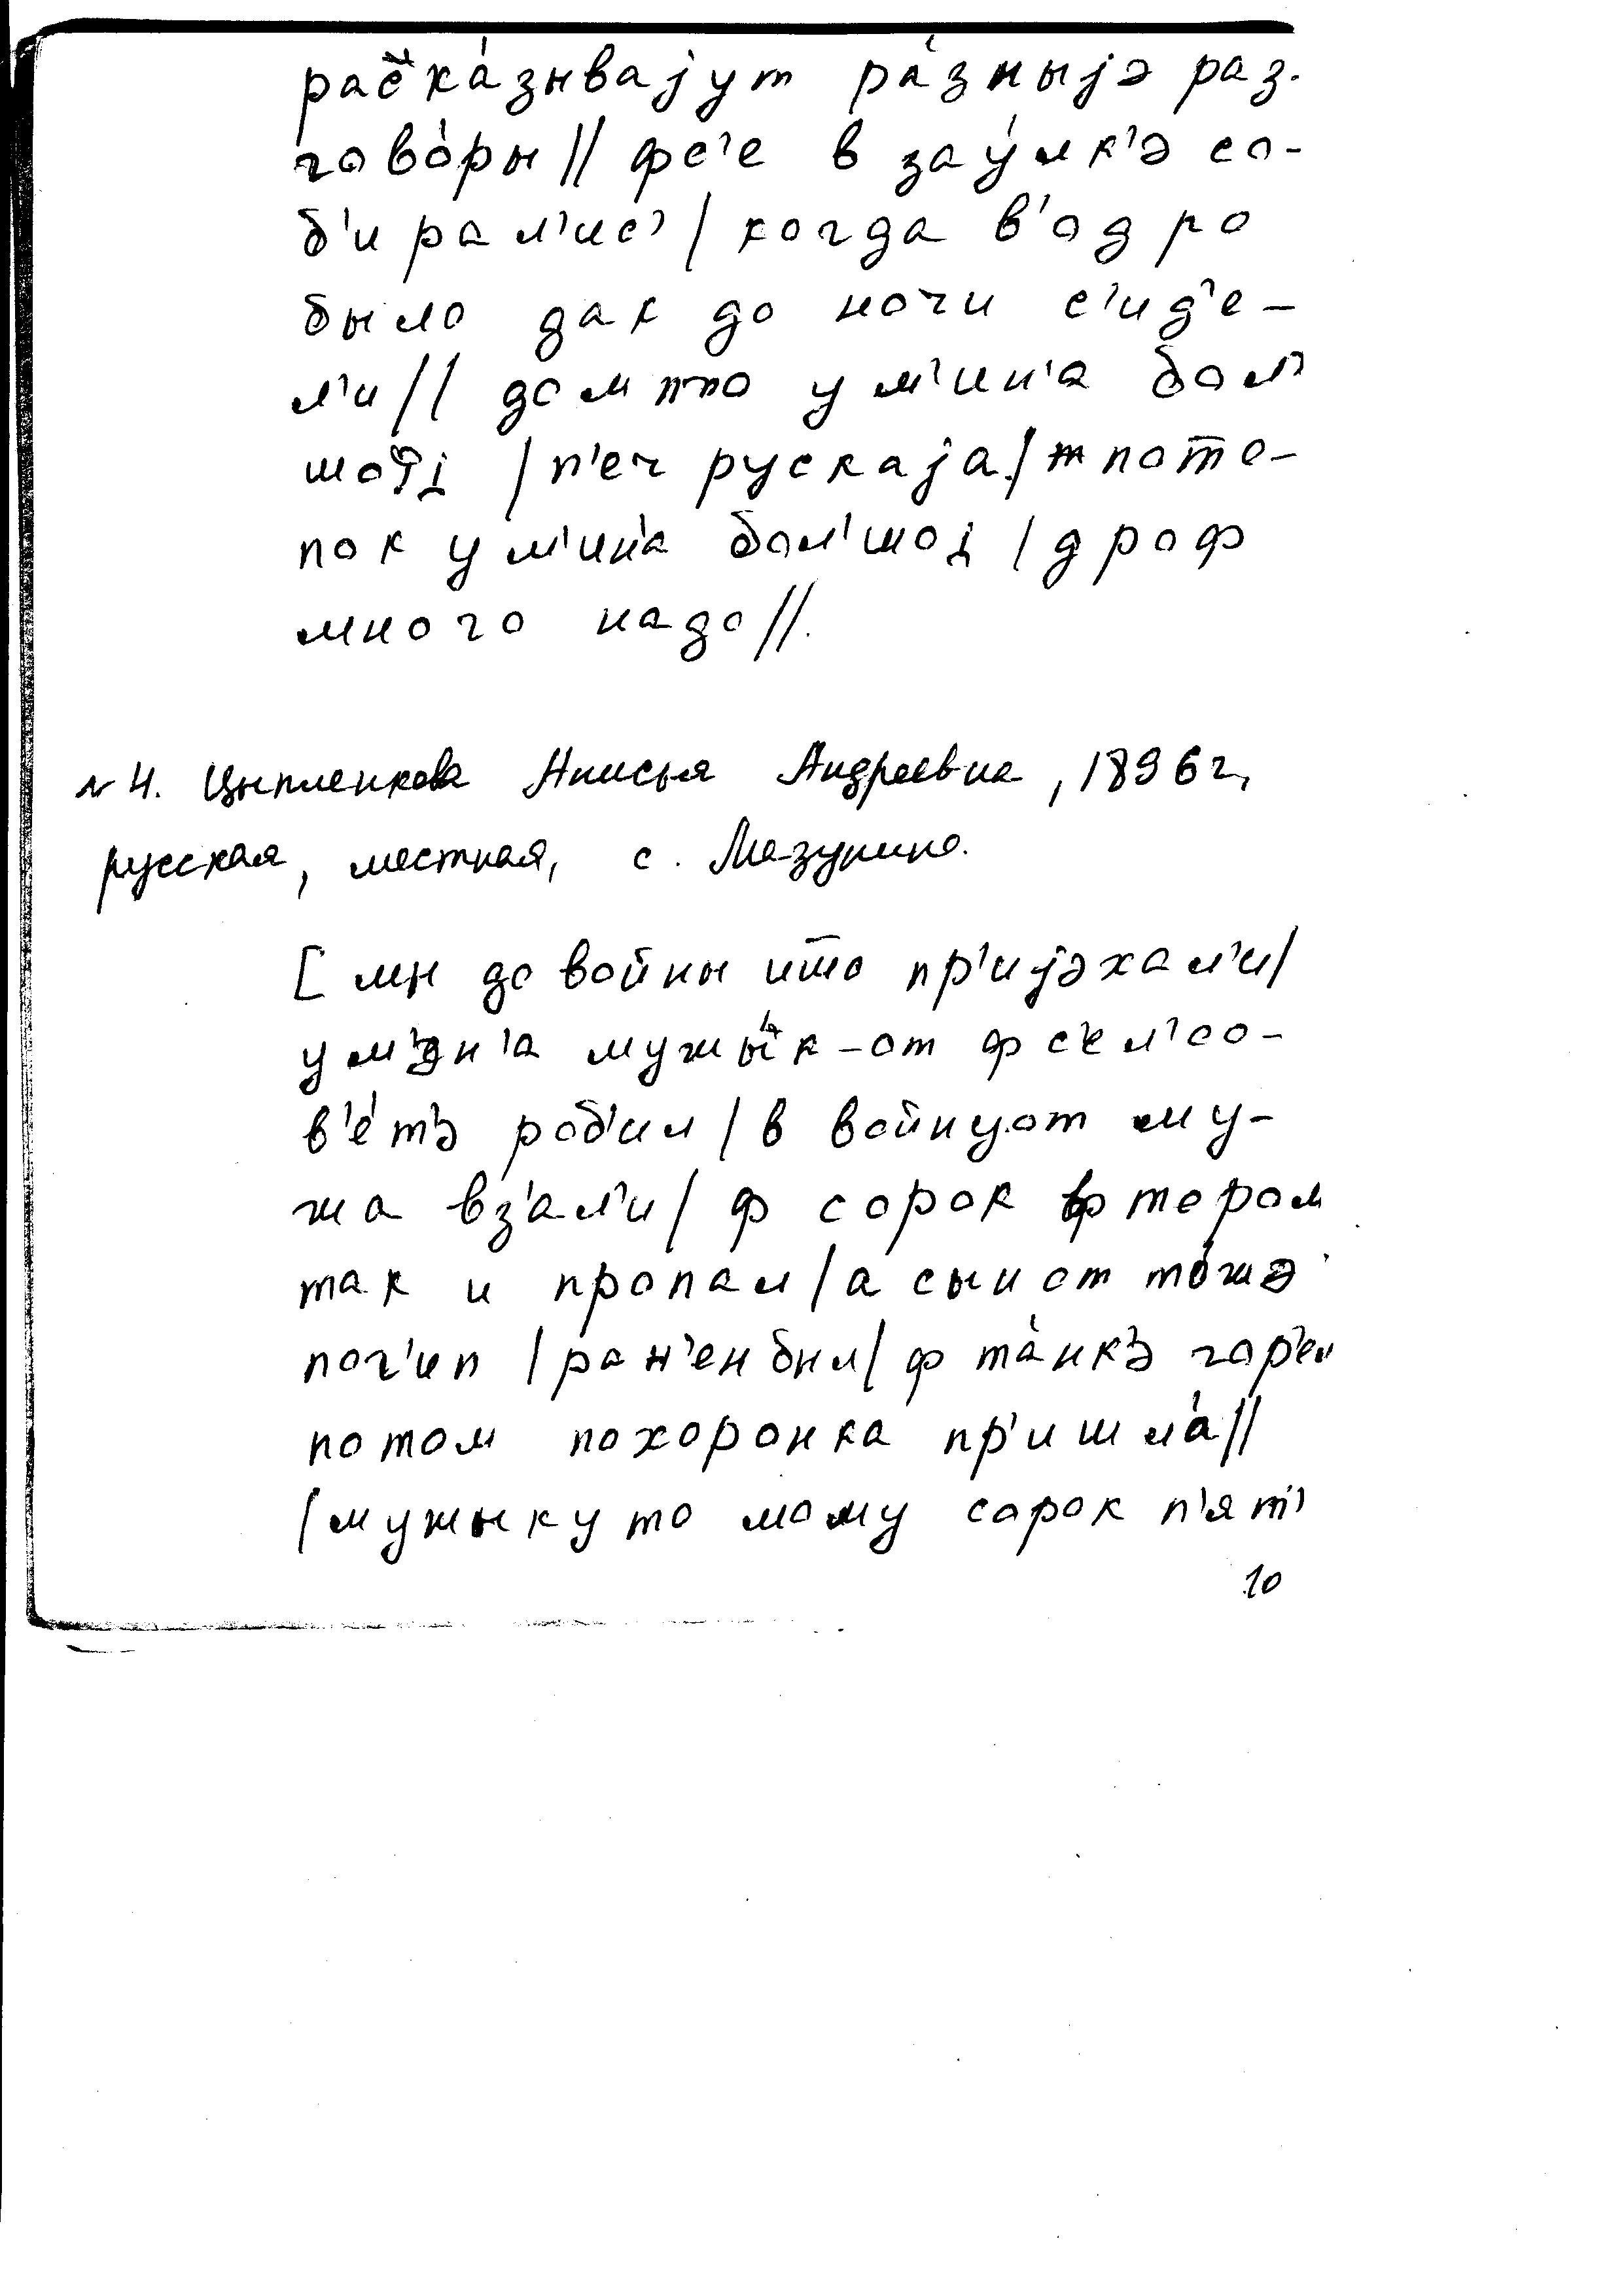 расска́зывајут ра́зныјэ раз-
гово́ры // фс'е в зау́лк'э со-
б'ирал'ис' / когда в'одро
было дак до ночи с'ид'е-
л'и // дом то у м'ин'а бол'
шој / п'еч рускаја / пото-
лок у м'ин'а бол'шој / дроф
много надо //.
№ 4. Цыпленкова Анисья Андреевна, 1896 г,
русская, местная, с. Мазунино.
[ мы до војны што пр'ијэхал'и /
у м'эн'а мужы́к-от ф с'ел'со-
в'е́т'э роб'ил / в војну от му-
жа вз'ал'и / ф сорок фтором
так и пропал / а сын от то́жэ
пог'ип / ран'ен был / ф та́нк'э гор'ел
потом похоронка пр'ишла́ //
/ мужыку то мому сорок п'ят'
10